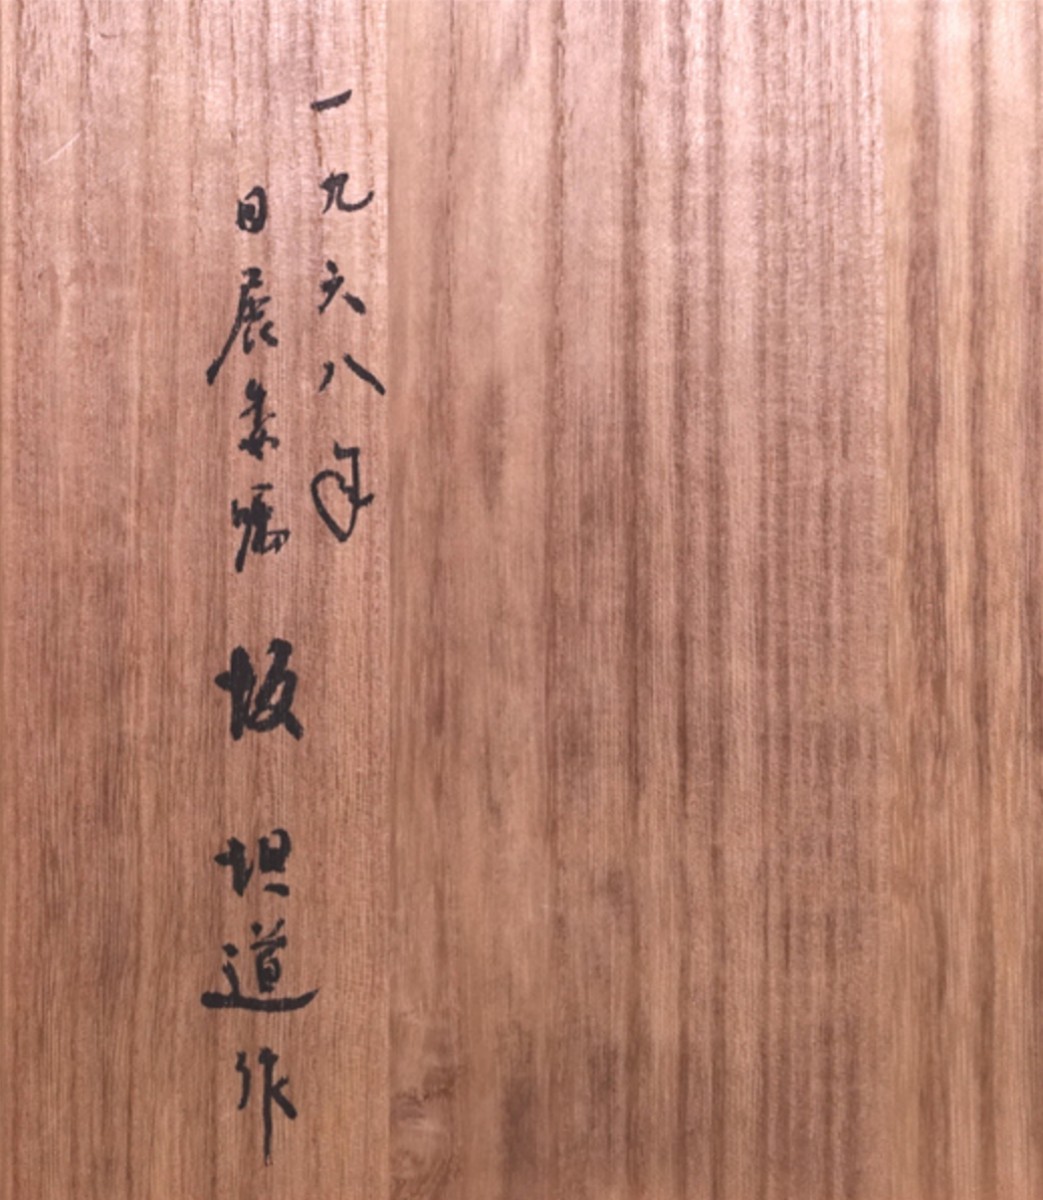 一九六八年
日展委嘱 坂 坦道作